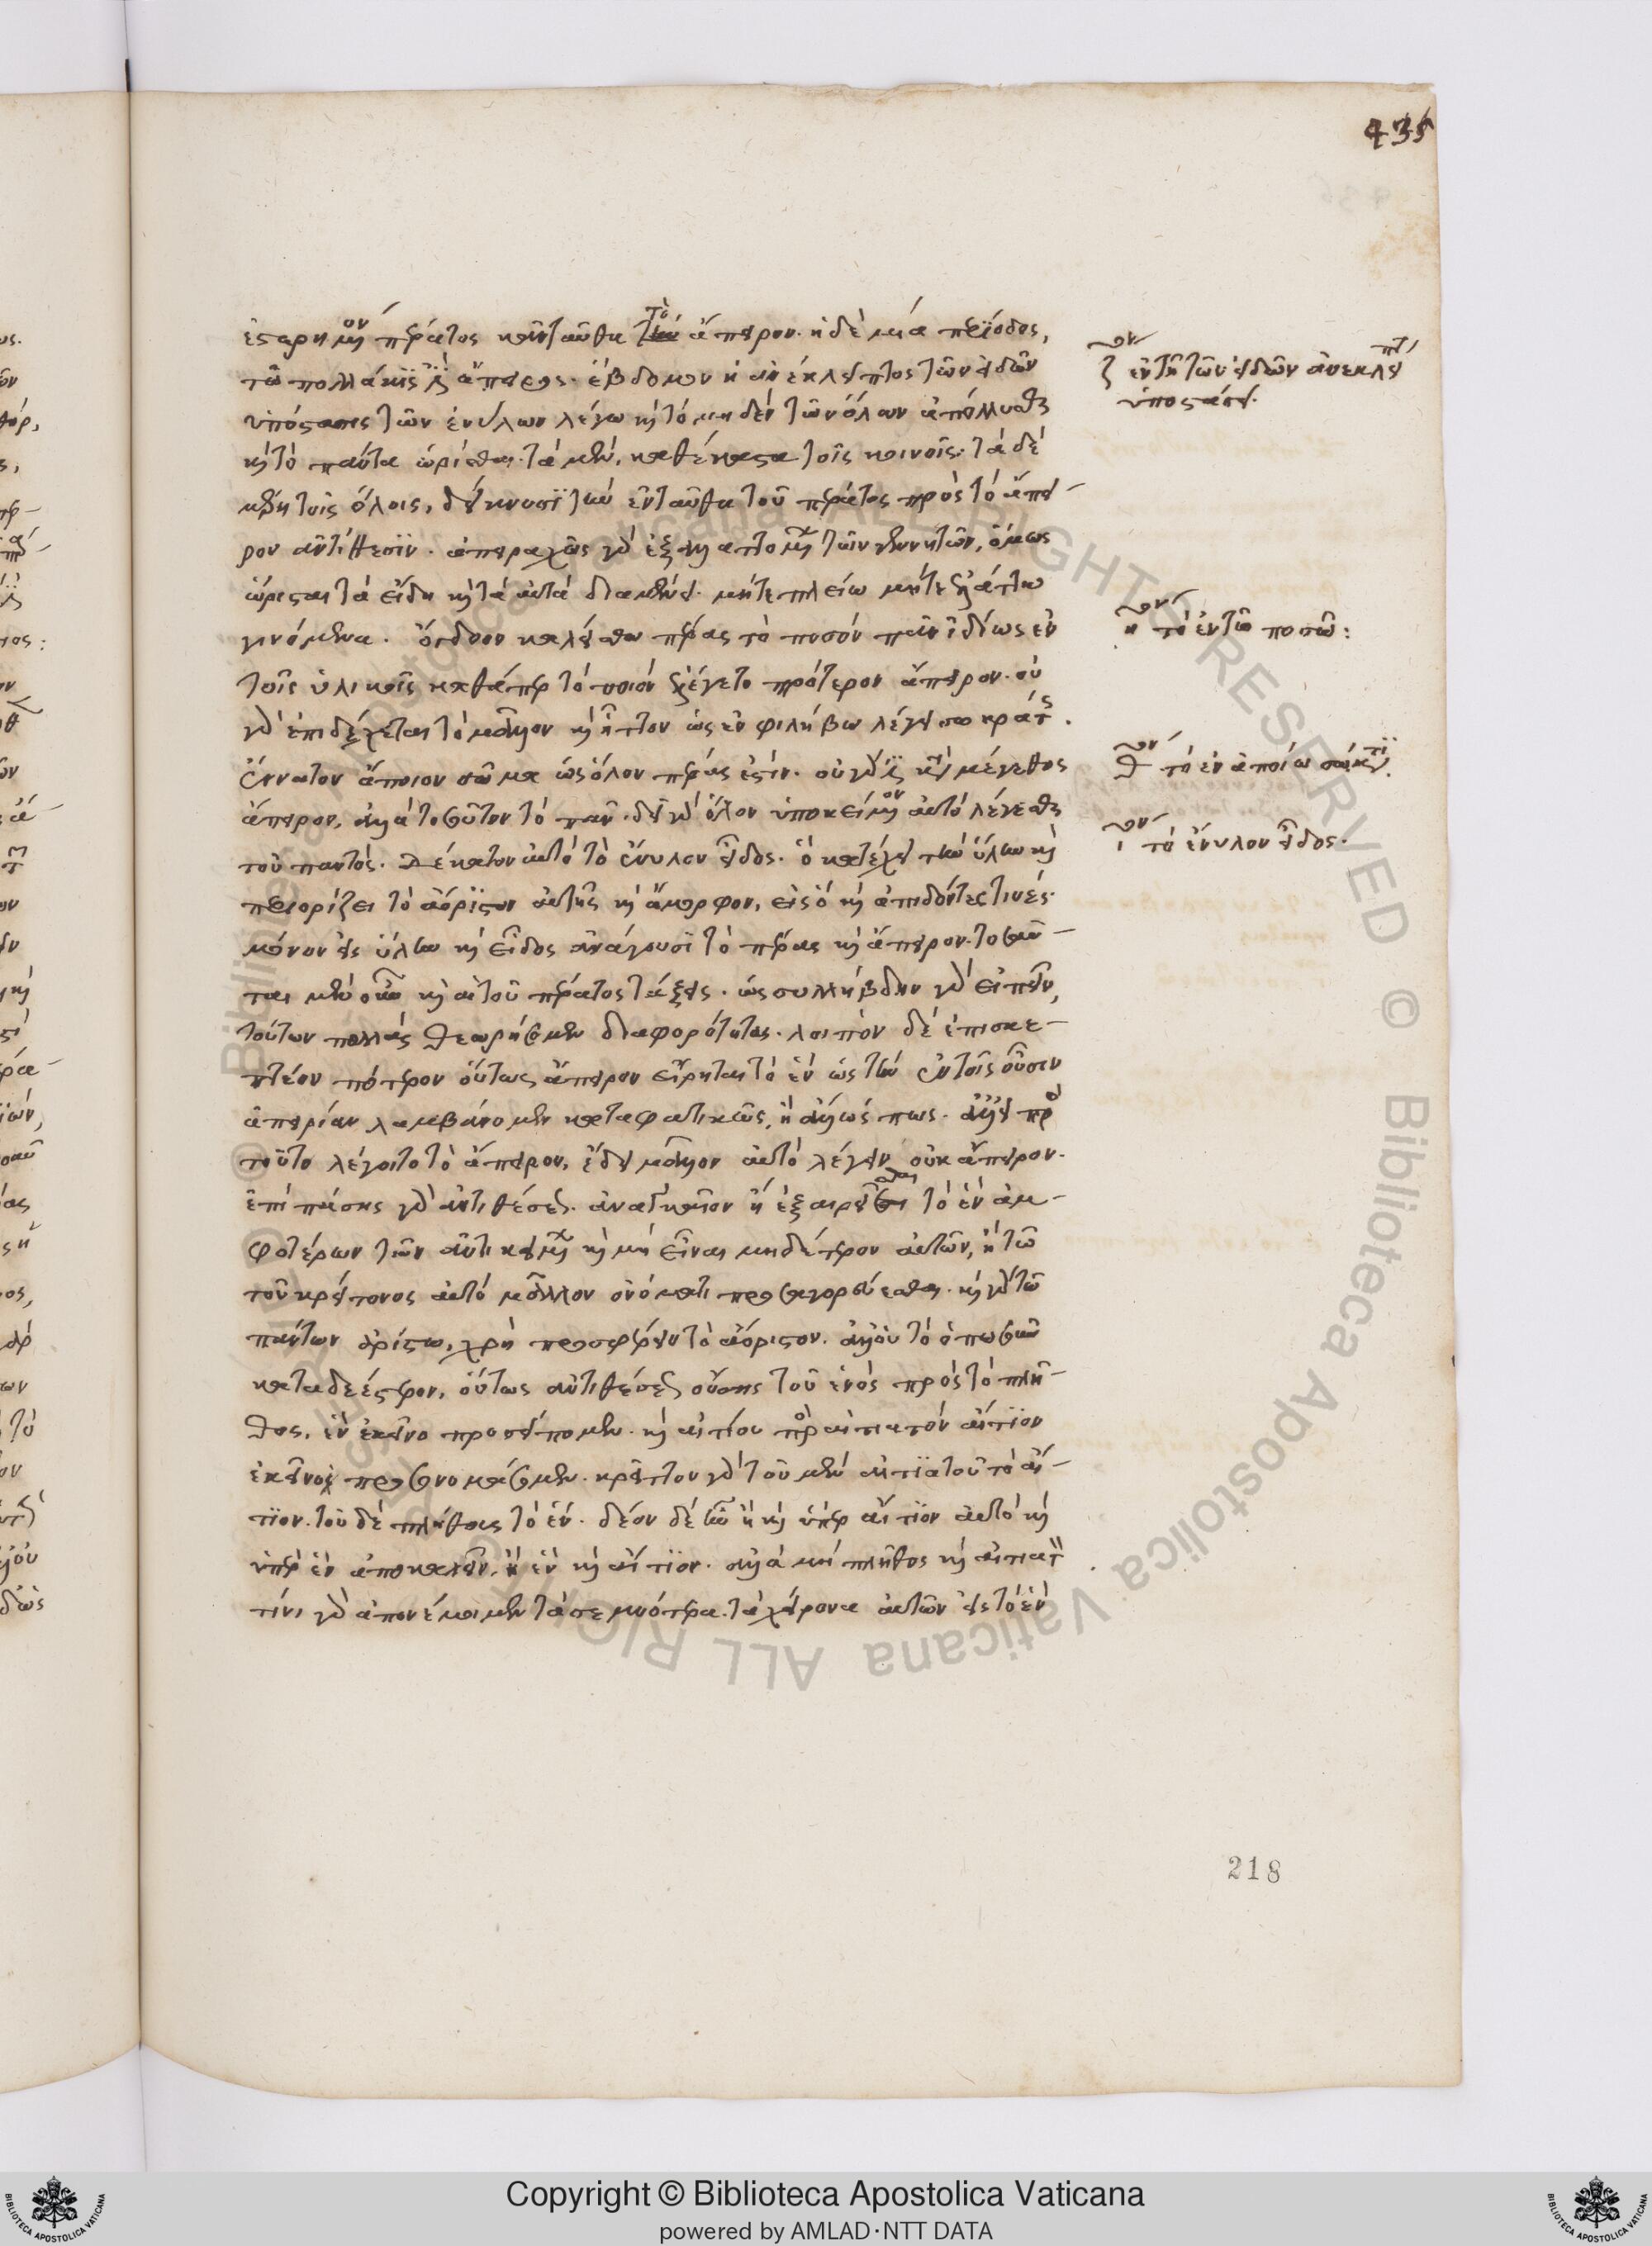 435
ἐξηρημένον πέρατος κἀνταῦθα τὸ ἄπειρον. ἡ δὲ μία περίοδος,
τῶ πολλάκις ἐστὶν ἄπειρος. ἕβδομον ἡ ἀνέκλειπτος τῶν εἰδῶν
ὑπόστασις τῶν ἐνύλων λέγω καὶ τὸ μηδὲν τῶν ὅλων ἀπόλλυσθαι
καὶ τὸ πάντα ὡρίσθαι. τὰ μὲν, καθέκαστα τοῖς κοινοῖς. τὰ δὲ
μέρη τοῖς ὅλοις, δείκνυσι τὴν ἐνταῦθα τοῦ πέρατος πρὸς τὸ ἄπει-
ρον ἀντίθεσιν. ἀπειραχῶς γὰρ ἐξαλλαττομένων τῶν γεννητῶν, ὅμως
ὥρισται τὰ εἴδη καὶ τὰ αὐτὰ διαμένει. μήτε πλείω μήτε ἐλάττω
γινόμενα. ὄγδοον καλείσθω πέρας τὸ ποσὸν πᾶν ἰδίως ἐν
τοῖς ὑλικοῖς καθάπερ τὸ ποιὸν ἐλέγετο πρότερον ἄπειρον. οὐ
γὰρ ἐπιδέχεται τὸ μᾶλλον καὶ ἧττον ὡς ἐν φιλήβω λέγει σωκράτης.
ἔννατον ἄποιον σῶμα ὡς ὅλον πέρας ἐστίν. οὐ γάρ ἐστι κατὰ μέγεθος
ἄπειρον, ἀλλὰ τοσοῦτον τὸ πᾶν. δεῖ γὰρ ὅλον ὑποκείμενον αὐτὸ λέγεσθαι
τοῦ παντός. δέκατον αὐτὸ τὸ ἔνυλον εἶδος. ὃ κατέχει τὴν ὕλην καὶ
περιορίζει τὸ ἀόριστον αὐτῆς καὶ ἄμορφον, εἰς ὃ καὶ ἀπιδόντες τινές.
μόνον εἰς ὕλην καὶ εἶδος ἀνάγουσι τὸ πέρας καὶ ἄπειρον. τοσαῦ-
ται μὲν οὖν καὶ αἱ τοῦ πέρατος τάξεις. ὡς συλλήβδην γὰρ εἰπεῖν,
τούτων πολλὰς θεωρήσομεν διαφορότητας. λοιπὸν δὲ ἐπισκε-
πτέον πότερον οὕτως ἄπειρον εἴρηται τὸ ἓν ὡς τὴν ἐν τοῖς οὖσιν
ἀπειρίαν λαμβάνομεν καταφατικῶς, ἢ ἄλλως πως. ἀλλ' εἰ πρὸς
τοῦτο λέγοιτο τὸ ἄπειρον, ἔδει μᾶλλον αὐτὸ λέγειν οὐκ ἄπειρον.
ἐπὶ πάσης γὰρ ἀντιθέσεως. ἀναγκαῖον ἢ ἐξαιρεῖσθαι τὸ ἓν ἀμ-
φοτέρων τῶν ἀντικειμένων καὶ μὴ εἶναι μηδέτερον αὐτῶν, ἢ τῶ
τοῦ κρείττονος αὐτὸ μᾶλλον ὀνόματι προσαγορεύεσθαι. καὶ γὰρ τῶ
πάντων ἀρίστω, χρὴ προσφέρειν τὸ ἀόριστον. ἀλλ' οὐ τὸ ὁπωσοῦν
καταδεέστερον, οὕτως ἀντιθέσεως οὔσης τοῦ ἑνὸς πρὸς τὸ πλῆ-
θος, ἓν ἐκεῖνο προσείπομεν. καὶ αἰτίου πρὸς αἰτιατὸν αἴτιον
ἐκεῖνο προσονομάσομεν. κρεῖττον γὰρ τοῦ μὲν αἰτιατοῦ τὸ αἴ-
τιον. τοῦ δὲ πλήθους τὸ ἕν. δέον δὲ ἦν ἢ καὶ ὑπὲρ αἴτιον αὐτὸ καὶ
ὑπὲρ ἓν ἀποκαλεῖν, ἢ ἓν καὶ αἴτιον. ἀλλὰ μὴ πλῆθος καὶ αἰτιατὸν.
τίνι γὰρ ἀπονέμοιμεν τὰ σεμνότερα. τὰ χείρονα αὐτῶν εἰς τὸ ἓν
ζον ἐν τῆ τῶν εἰδῶν ἀνεκλείπτω
ὑποστάσει.
ηον τὸ ἐν τῶ ποσῶ:
θον τὸ ἐν ἀποίω σώματι.
ιον τὸ ἔνυλον εἶδος.
218
Copyright © Biblioteca Apostolica Vaticana
powered by AMLAD·NTT DATA